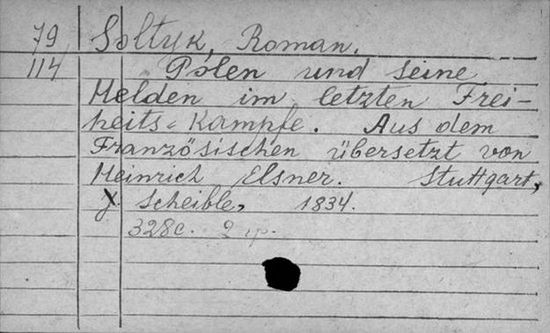 79 Soltyk, Roman.
114 Polen und seine
Helden im letzten Frei-
heits-Kampfe. Aus dem
Französischen übersetzt von
Heinrich Elsner. Stuttgart,
J Scheible, 1834.
328c. 2